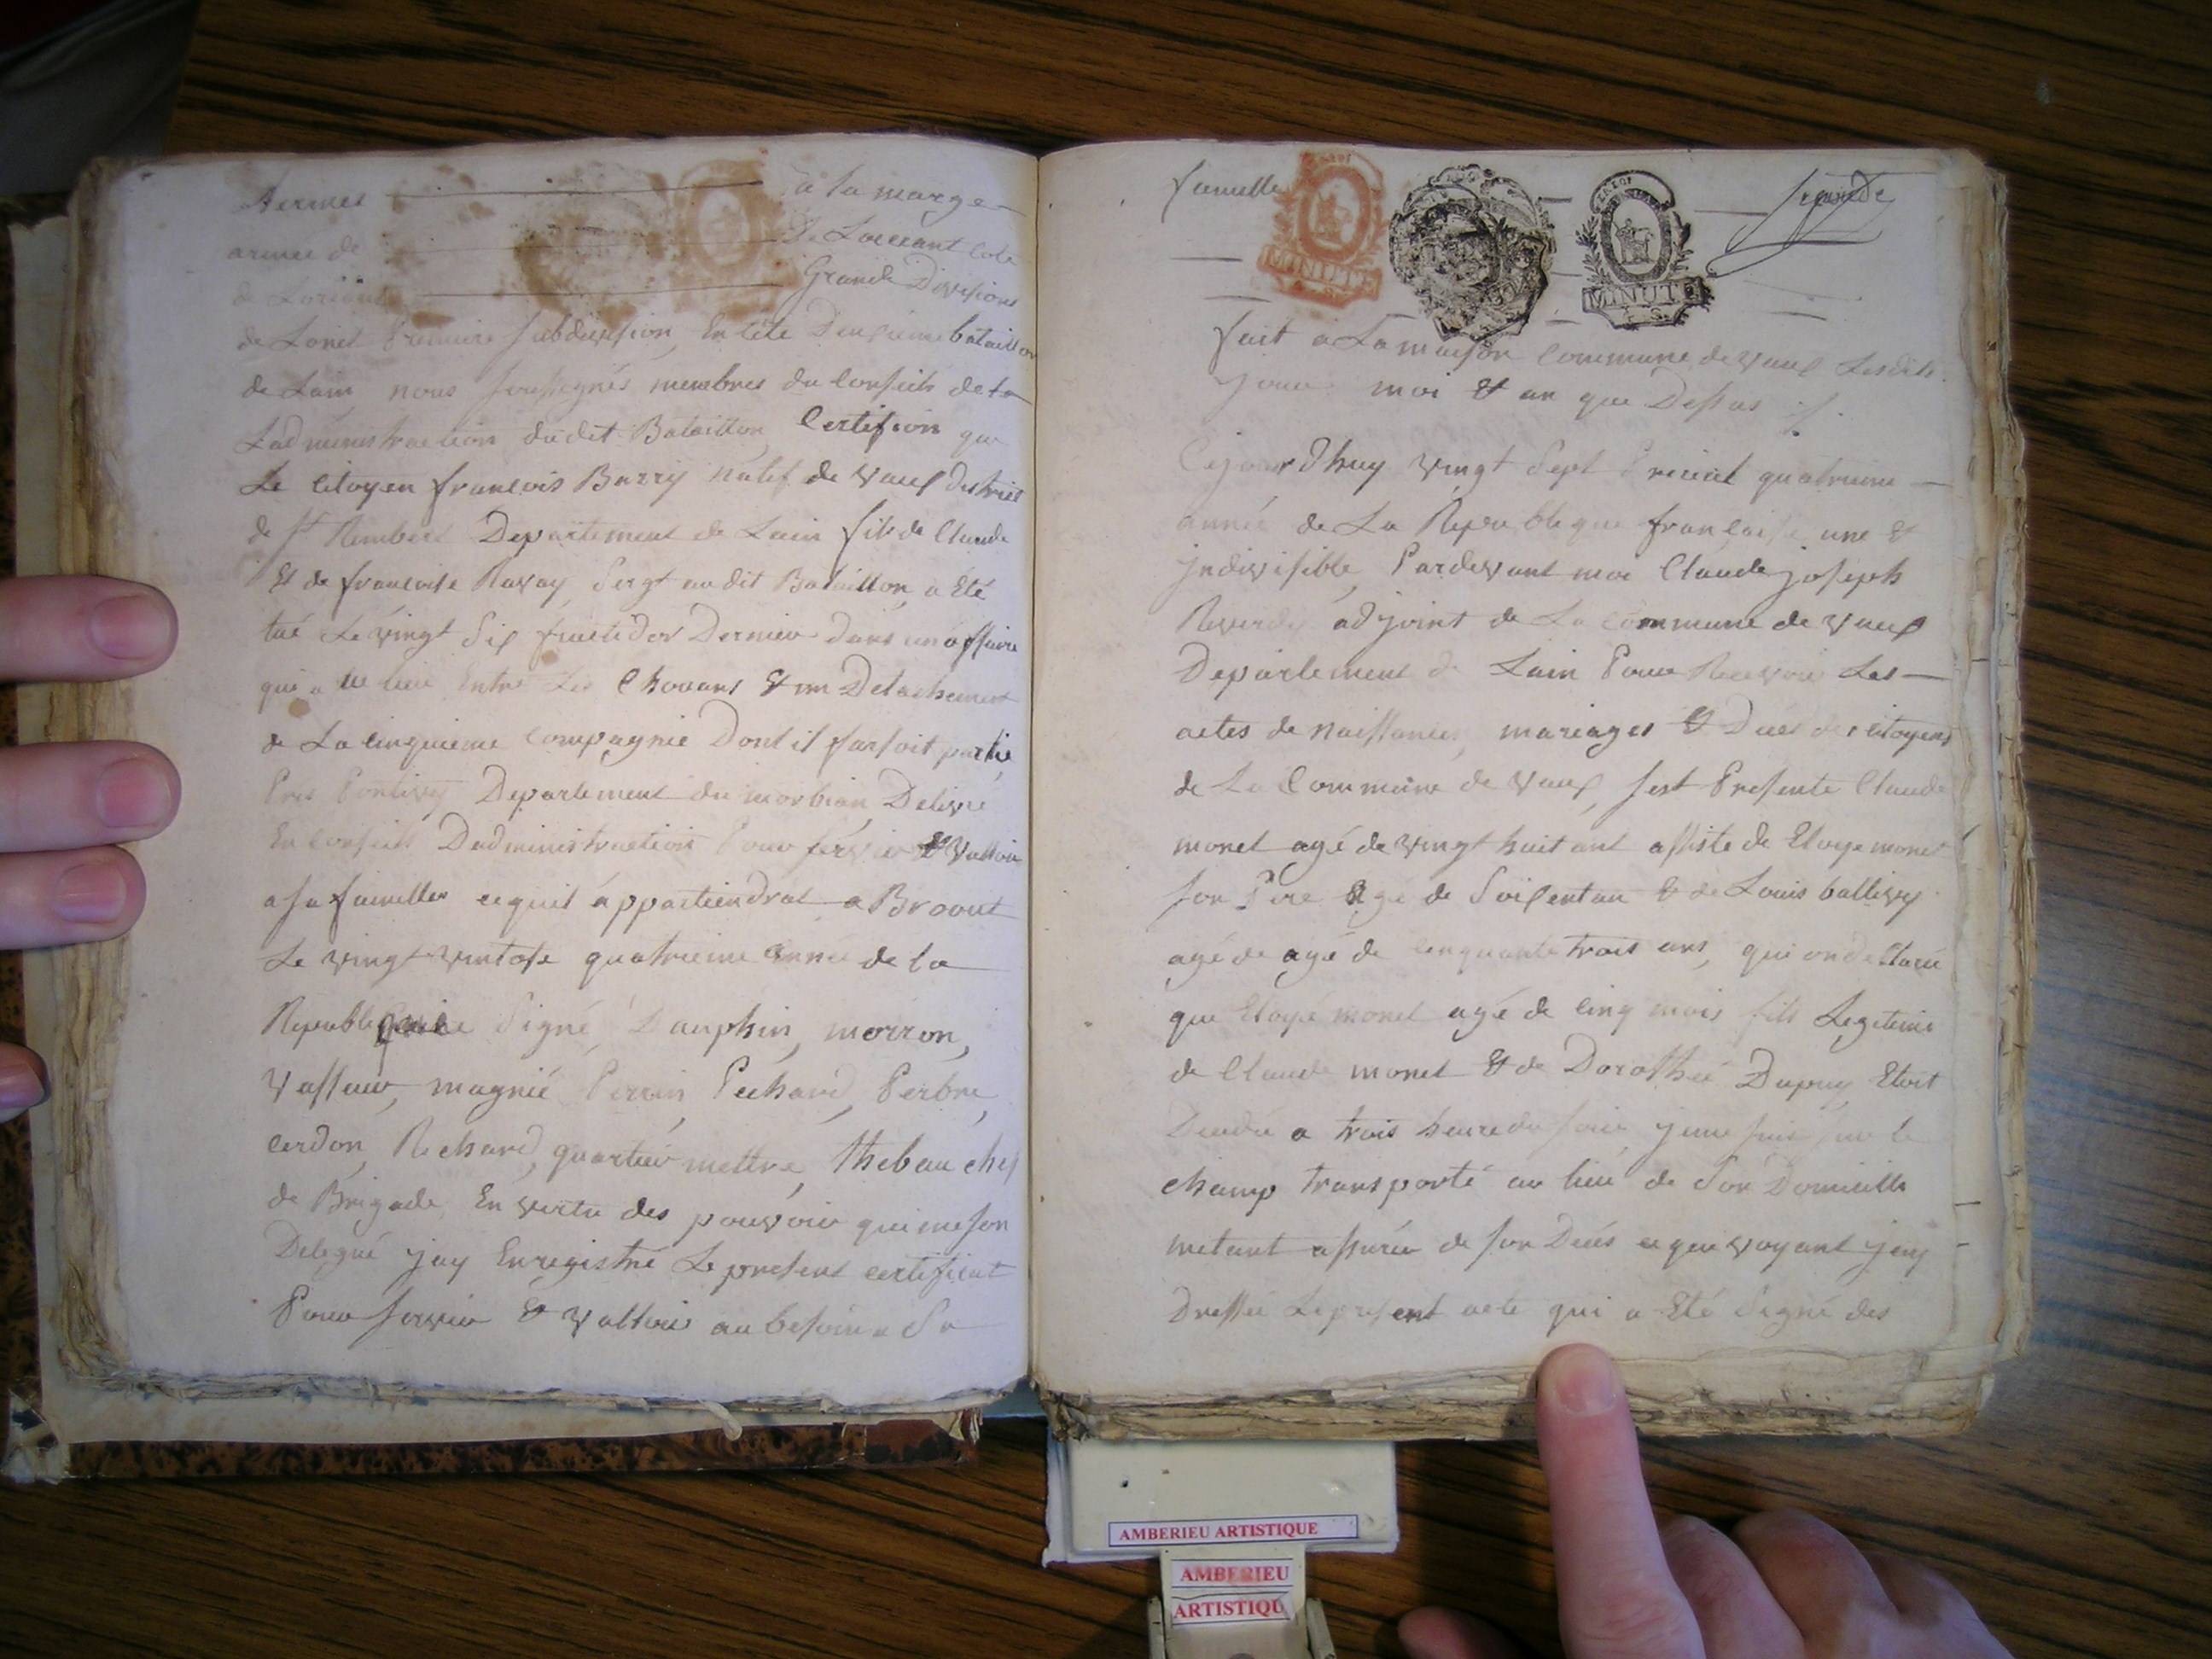 a la marge
armee de
de Loccant cote
de Lorient
Grande Division
de Lonel Premiere subdivision, En tete Deuxieme bataillon
de Lain, nous soussignés membres du Conseils de la
Ladministraction dudit Bataillon, Certifion que
Le Citoyen francois Barry natif de Vaux district
de St Rembert Departement de Lain fils de Claude
Et de francoise Ravay, Sergt audit Bataillon, a Eté
tué Le vingt Six fructidor Dernier dans un affaire
qui a eu lieu Entre Les Chouans & un Detachement
de La cinquieme Compagnie Dont il faisoit partie
Pres Pontivy Departement du morbian, Delivré
En Conseils Dadministraction Pour servir & Valloir
a sa famille ce quil appartiendrat a Broout
Le vingt ventose quatrieme année de la
Republique Signé, Dauphin, morron,
Vasseur, magnié Perrin, Pechard, Perbre,
cerdon, Richard, quartier mettre, thebau chef
de Brigade, En vertu des pouvoir qui me son
Delegué jay Enregistré Le present certificat
Pour servir & valloir au besoin a Sa
famille
Reverde
MINUTE
MINUTE
fait a La maison Commune de Vaux Lesdits
jour moi & an que Dessus
Cejourdhuy vingt Sept Prerial quatrieme
année de La Republique francaise une &
jndivisible, Pardevant moi Claude joseph
Reverdy adjoint de La Commune de Vaux
Departement de Lain Pour Recevoir Les
actes de Naissances, mariages & Deces des citoyens
de La Commune de Vaux, sest Presente Claude
monet agé de vingt huit ant assiste de Eloye monet
son Pere Agé de Soixentan & de Louis ballivy
agé de agé de cinquante trois ans, qui on declaré
que Eloye monet agé de cinq mois fils Legetime
de Claude monet & de Dorothée Dupuy Etoit
Decedé a trois heure du soir, jeme suis sur le
champ transporté au lieu de Son Domicille
metant assurér de son Decés ce que voyant jay
Dressée Le present acte qui a Eté Signé des
AMBERIEU ARTISTIQUE
AMBERIEU
ARTISTIQU